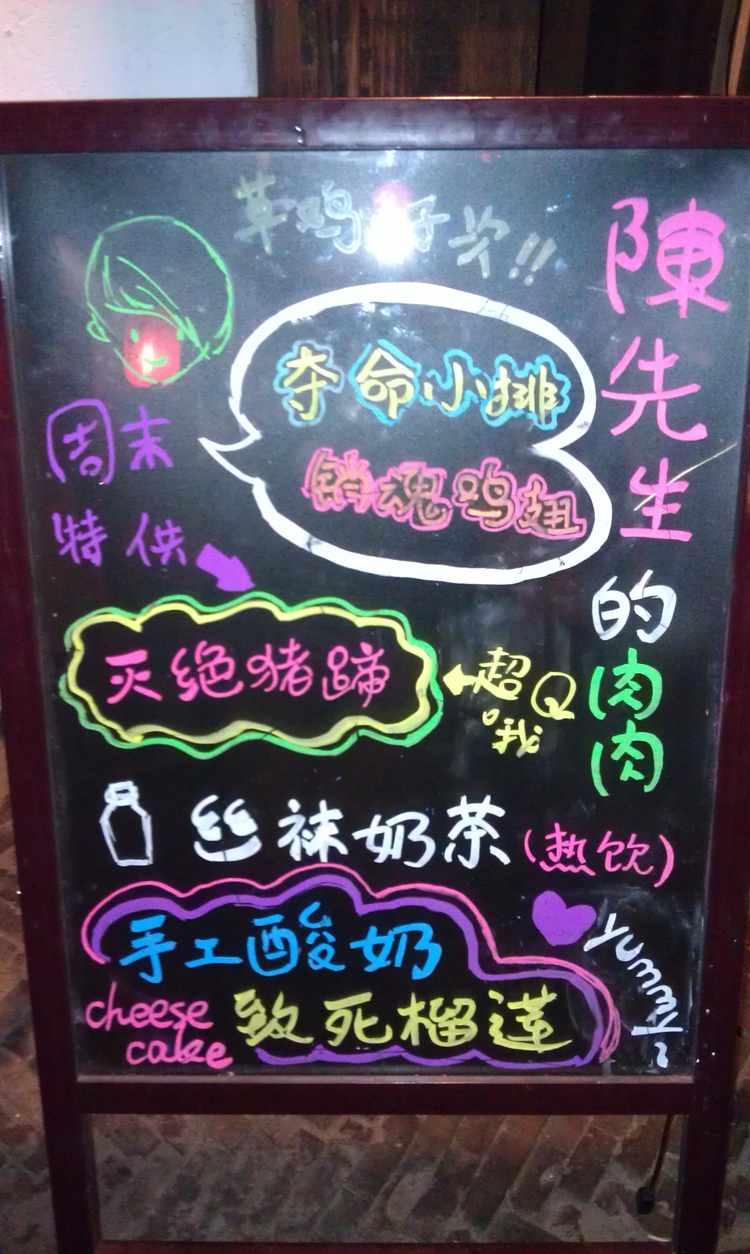 陳先生的肉肉
夺命小排
销魂鸡翅
周末
特供
灭绝猪蹄
超Q
哦
丝袜奶茶(热饮)
手工酸奶
yummy~
cheese
cake
致死榴莲